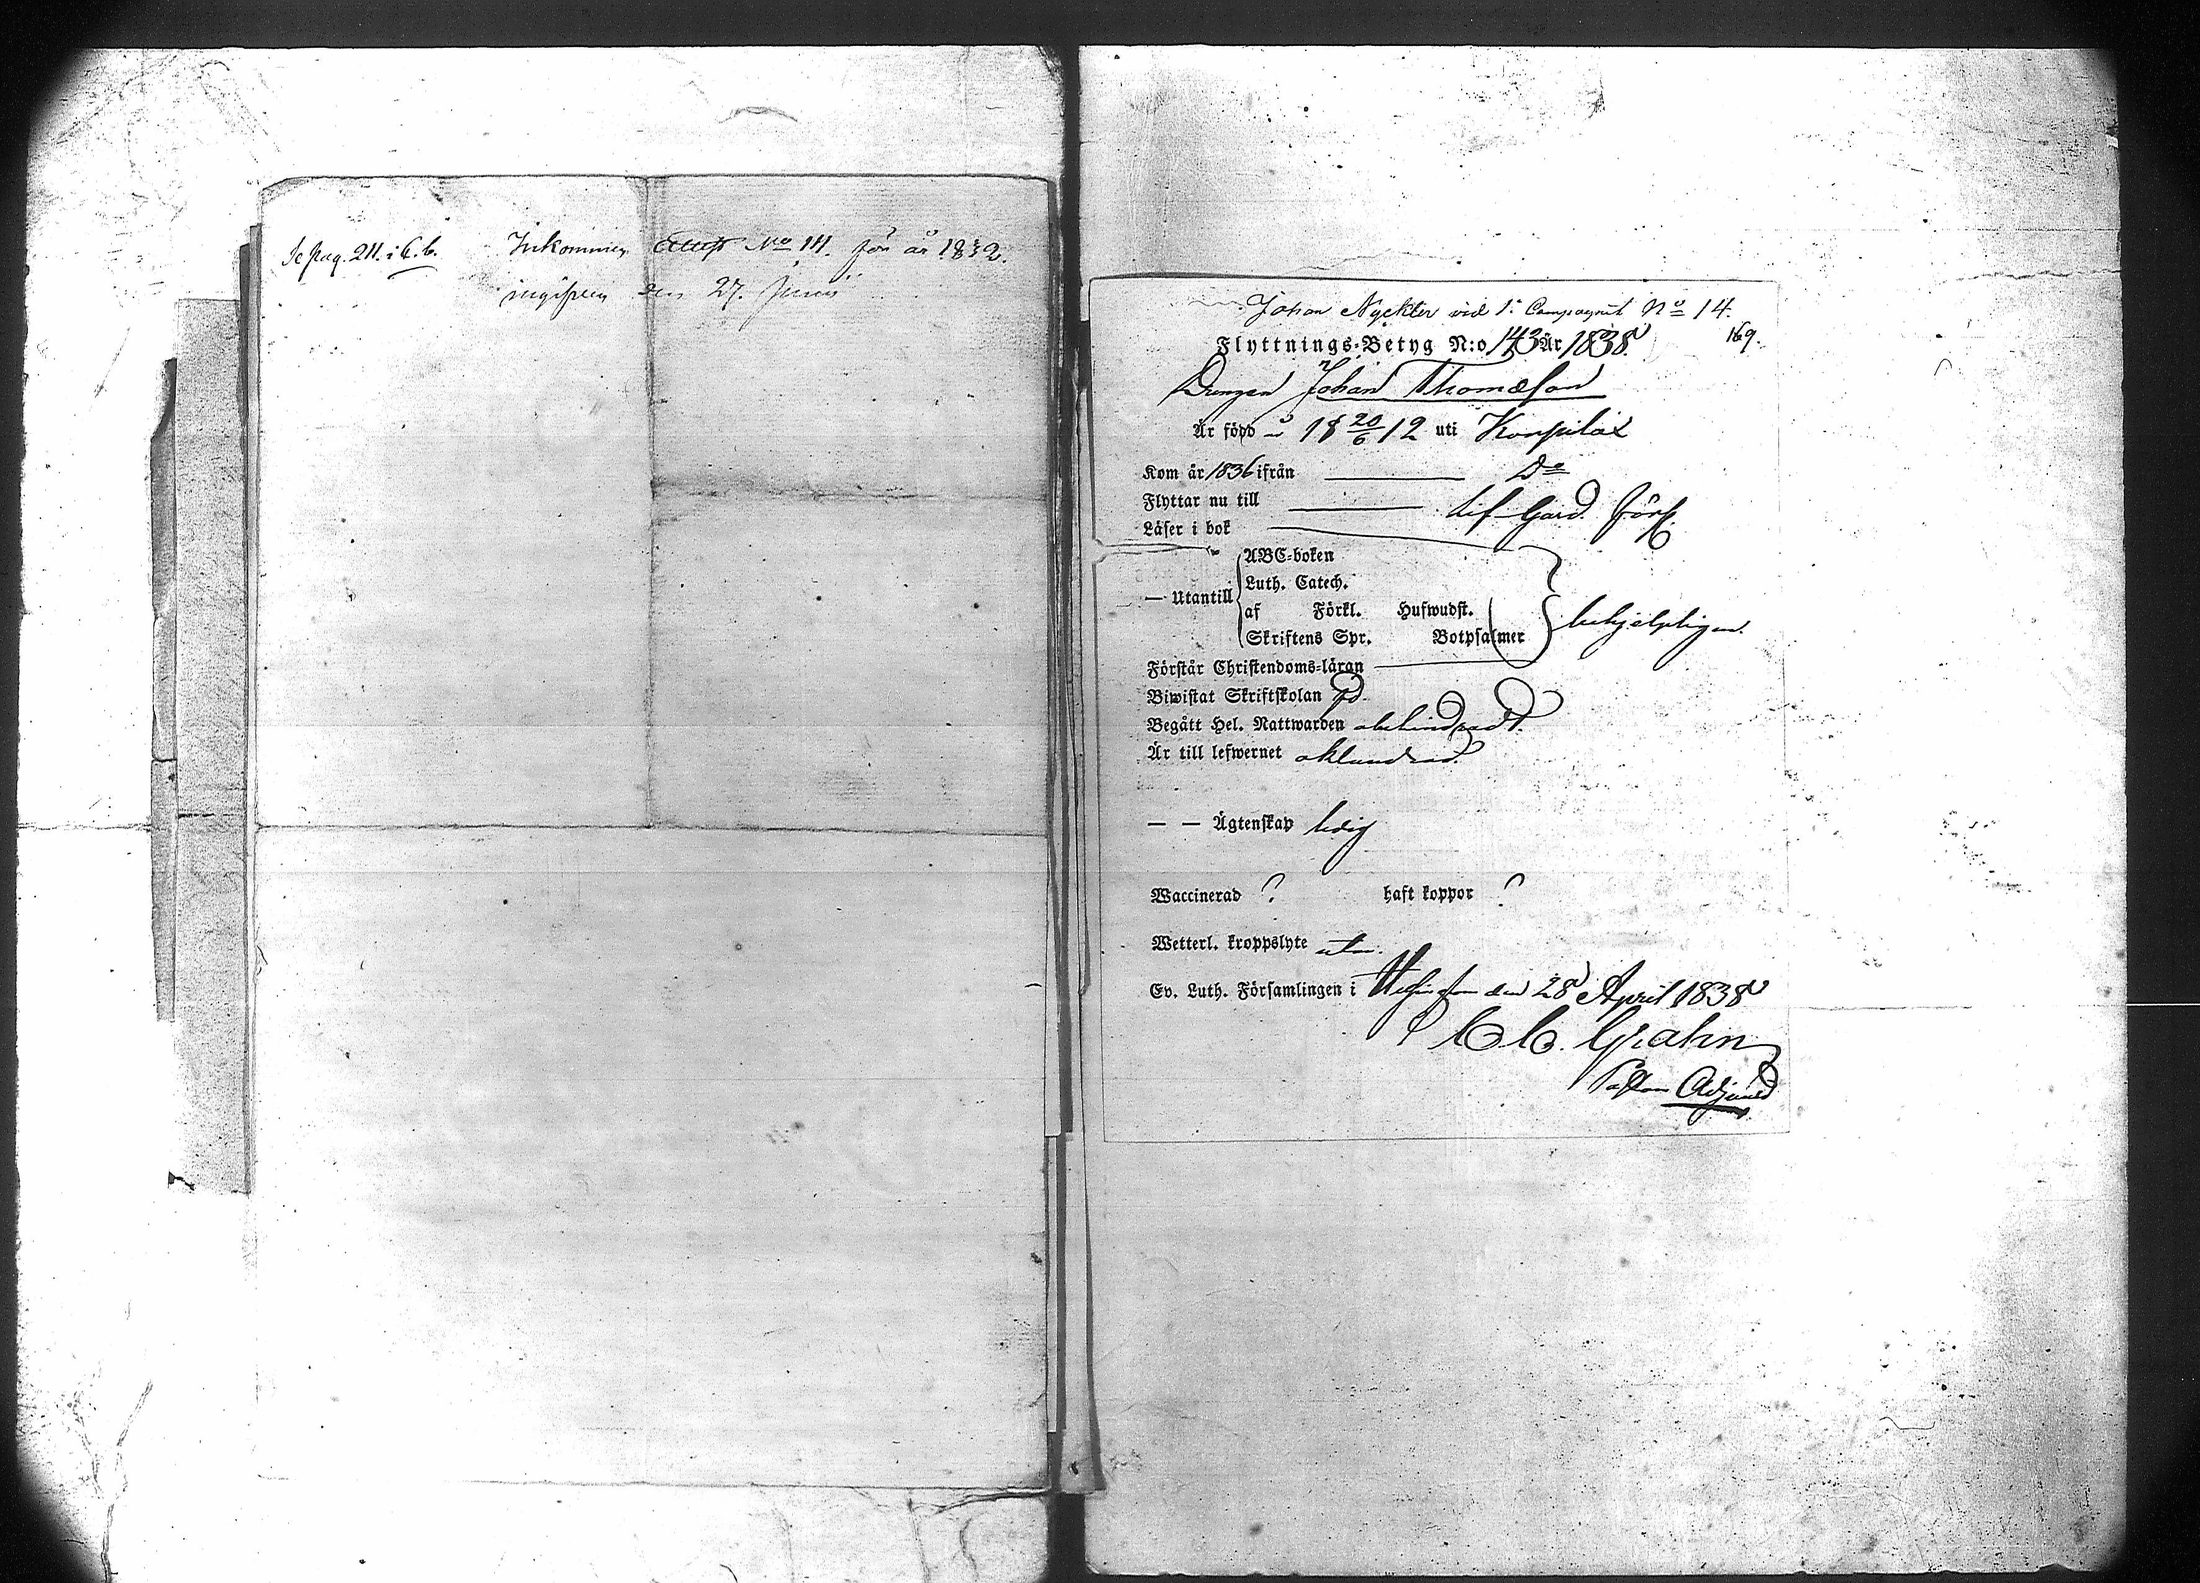 Se pag. 211. i C. b.
Inkommen Attest No 111. för år 1832.
ingifven den 27. Junii
Johan Nyckter vid 1. Compagniet No 14.
169.
Flyttnings-Betyg N:o 143 År 1838.
Drengen Johan Thomasson
Är född d 18 20/6 12 uti Korpilax
Kom år 1836 ifrån Do
Flyttar nu till Lif-Gard. Förs.
Läser i bok
ABC-boken
Luth. Catech.
— Utantill
af Förkl. Hufwudst.
behjelpligen.
Skriftens Spr. Botpsalmer
Förstår Christendoms-läran
Biwistat Skriftskolan
Begått Hel. Nattwarden obehindradt.
Är till lefwernet oklandrad.
— — Ägtenskap ledig
Waccinerad ? haft koppor ?
Wetterl. kroppslyte utan.
Ev. Luth. Församlingen i Helsingfors den 28 April 1838
C. C. Grahn
Pastors Adjunct